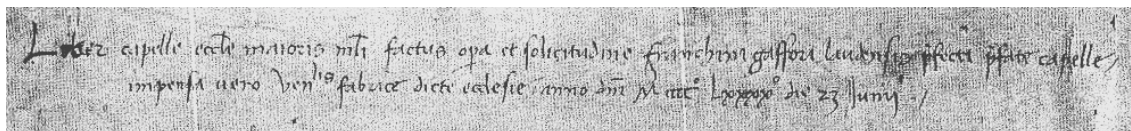 Liber capelle eccle maioris mli factus opa et solicitudine franchini gaffori laudensis pfecti pfate capelle
impensa vero venlis fabrice dicte ecclesie anno dni Mcccco Lxxxxo die 23 Junij